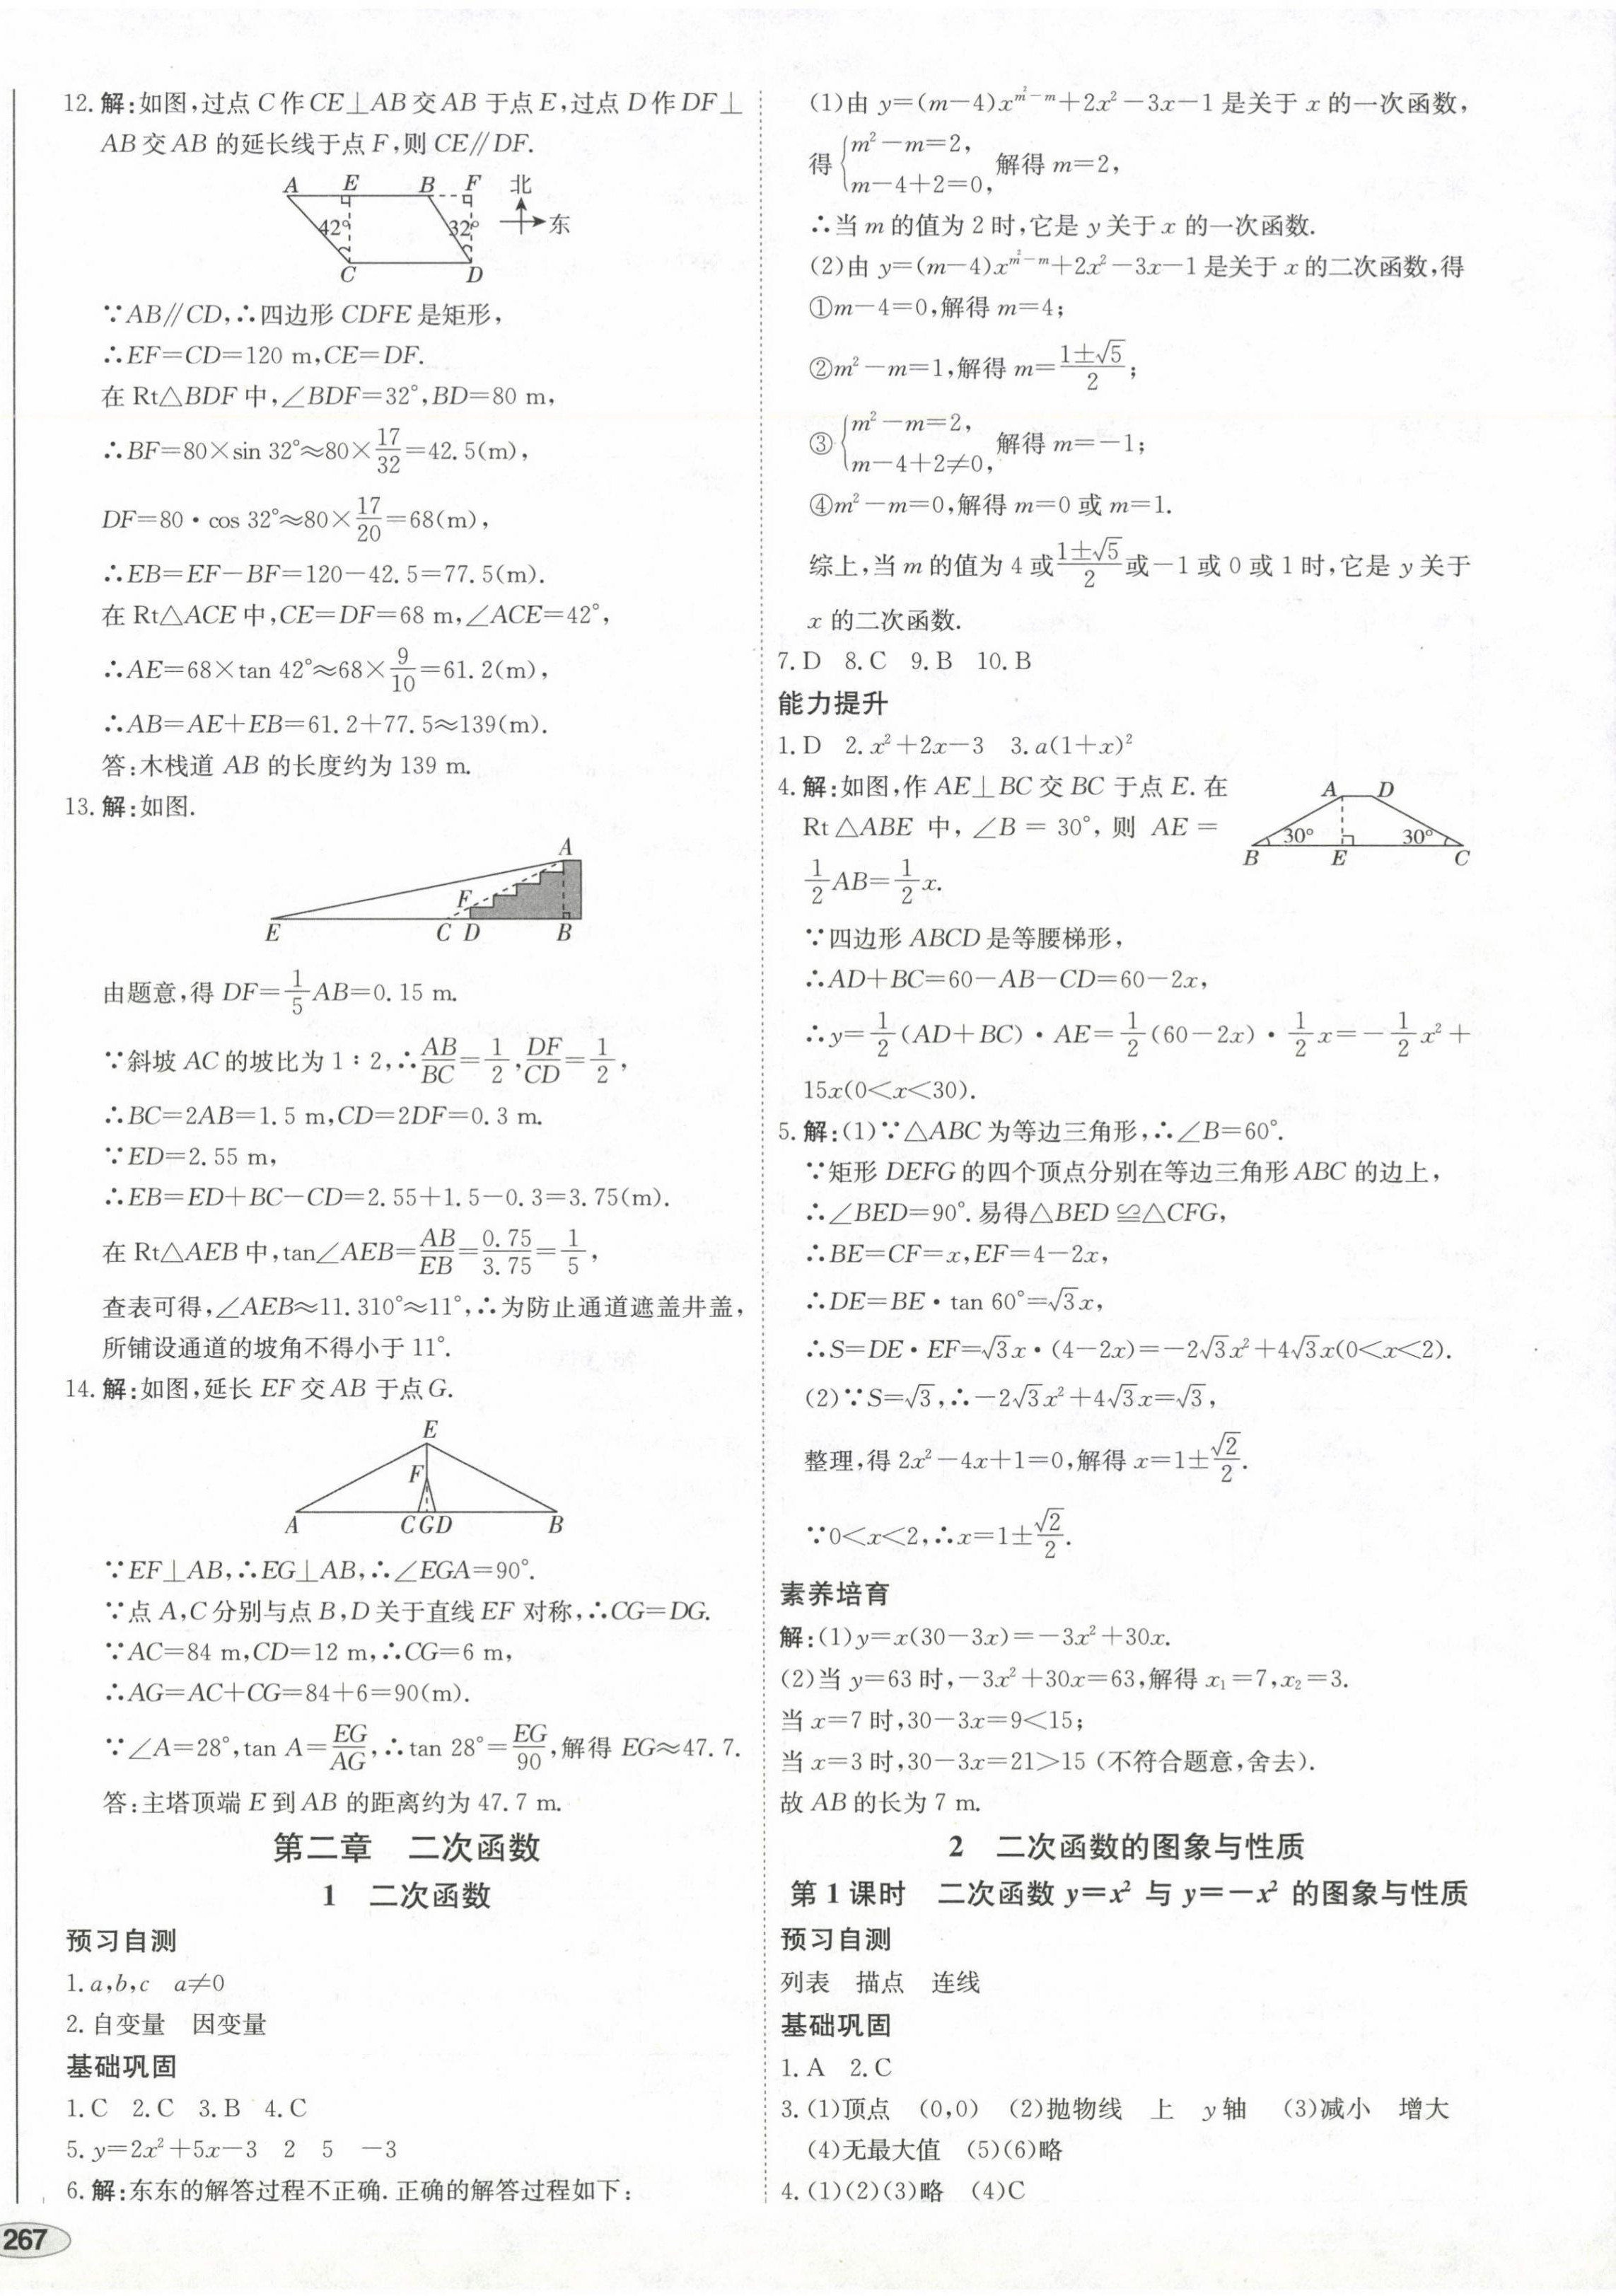 12. 解:如图,过点 C 作 CE⊥AB 交 AB 于点 E,过点 D 作 DF⊥
AB 交 AB 的延长线于点 F,则 CE∥DF.
A E B F 北
42° 32° 东
C D
∵AB∥CD,∴四边形 CDFE 是矩形,
∴EF=CD=120 m,CE=DF.
在 Rt△BDF 中,∠BDF=32°,BD=80 m,
∴BF=80×sin 32°≈80×17/32=42.5(m),
DF=80·cos 32°≈80×17/20=68(m),
∴EB=EF-BF=120-42.5=77.5(m).
在 Rt△ACE 中,CE=DF=68 m,∠ACE=42°,
∴AE=68×tan 42°≈68×9/10=61.2(m),
∴AB=AE+EB=61.2+77.5≈139(m).
答:木栈道 AB 的长度约为 139 m.
13. 解:如图.
A
F
E C D B
由题意,得 DF=1/5AB=0.15 m.
∵斜坡 AC 的坡比为 1∶2,∴AB/BC=1/2,DF/CD=1/2,
∴BC=2AB=1.5 m,CD=2DF=0.3 m.
∵ED=2.55 m,
∴EB=ED+BC-CD=2.55+1.5-0.3=3.75(m).
在 Rt△AEB 中,tan∠AEB=AB/EB=0.75/3.75=1/5,
查表可得,∠AEB≈11.310°≈11°,∴为防止通道遮盖井盖,
所铺设通道的坡角不得小于 11°.
14. 解:如图,延长 EF 交 AB 于点 G.
E
F
A C G D B
∵EF⊥AB,∴EG⊥AB,∴∠EGA=90°.
∵点 A,C 分别与点 B,D 关于直线 EF 对称,∴CG=DG.
∵AC=84 m,CD=12 m,∴CG=6 m,
∴AG=AC+CG=84+6=90(m).
∵∠A=28°,tan A=EG/AG,∴tan 28°=EG/90,解得 EG≈47.7.
答:主塔顶端 E 到 AB 的距离约为 47.7 m.
第二章 二次函数
1 二次函数
预习自测
1. a,b,c a≠0
2. 自变量 因变量
基础巩固
1. C 2. C 3. B 4. C
5. y=2x²+5x-3 2 5 -3
6. 解:东东的解答过程不正确. 正确的解答过程如下:
267
(1)由 y=(m-4)x^(m²-m)+2x²-3x-1 是关于 x 的一次函数,
得{m²-m=2,
m-4+2=0, 解得 m=2,
∴当 m 的值为 2 时,它是 y 关于 x 的一次函数.
(2)由 y=(m-4)x^(m²-m)+2x²-3x-1 是关于 x 的二次函数,得
①m-4=0,解得 m=4;
②m²-m=1,解得 m=(1±√5)/2;
③{m²-m=2,
m-4+2≠0, 解得 m=-1;
④m²-m=0,解得 m=0 或 m=1.
综上,当 m 的值为 4 或(1±√5)/2或-1 或 0 或 1 时,它是 y 关于
x 的二次函数.
7. D 8. C 9. B 10. B
能力提升
1. D 2. x²+2x-3 3. a(1+x)²
4. 解:如图,作 AE⊥BC 交 BC 于点 E. 在
Rt△ABE 中,∠B=30°,则 AE=
1/2AB=1/2x.
A D
30° 30°
B E C
∵四边形 ABCD 是等腰梯形,
∴AD+BC=60-AB-CD=60-2x,
∴y=1/2(AD+BC)·AE=1/2(60-2x)·1/2x=-1/2x²+
15x(0<x<30).
5. 解:(1)∵△ABC 为等边三角形,∴∠B=60°.
∵矩形 DEFG 的四个顶点分别在等边三角形 ABC 的边上,
∴∠BED=90°. 易得△BED≌△CFG,
∴BE=CF=x,EF=4-2x,
∴DE=BE·tan 60°=√3x,
∴S=DE·EF=√3x·(4-2x)=-2√3x²+4√3x(0<x<2).
(2)∵S=√3,∴-2√3x²+4√3x=√3,
整理,得 2x²-4x+1=0,解得 x=1±√2/2.
∵0<x<2,∴x=1±√2/2.
素养培育
解:(1)y=x(30-3x)=-3x²+30x.
(2)当 y=63 时,-3x²+30x=63,解得 x₁=7,x₂=3.
当 x=7 时,30-3x=9<15;
当 x=3 时,30-3x=21>15(不符合题意,舍去).
故 AB 的长为 7 m.
2 二次函数的图象与性质
第 1 课时 二次函数 y=x² 与 y=-x² 的图象与性质
预习自测
列表 描点 连线
基础巩固
1. A 2. C
3. (1)顶点 (0,0) (2)抛物线 上 y 轴 (3)减小 增大
(4)无最大值 (5)(6)略
4. (1)(2)(3)略 (4)C